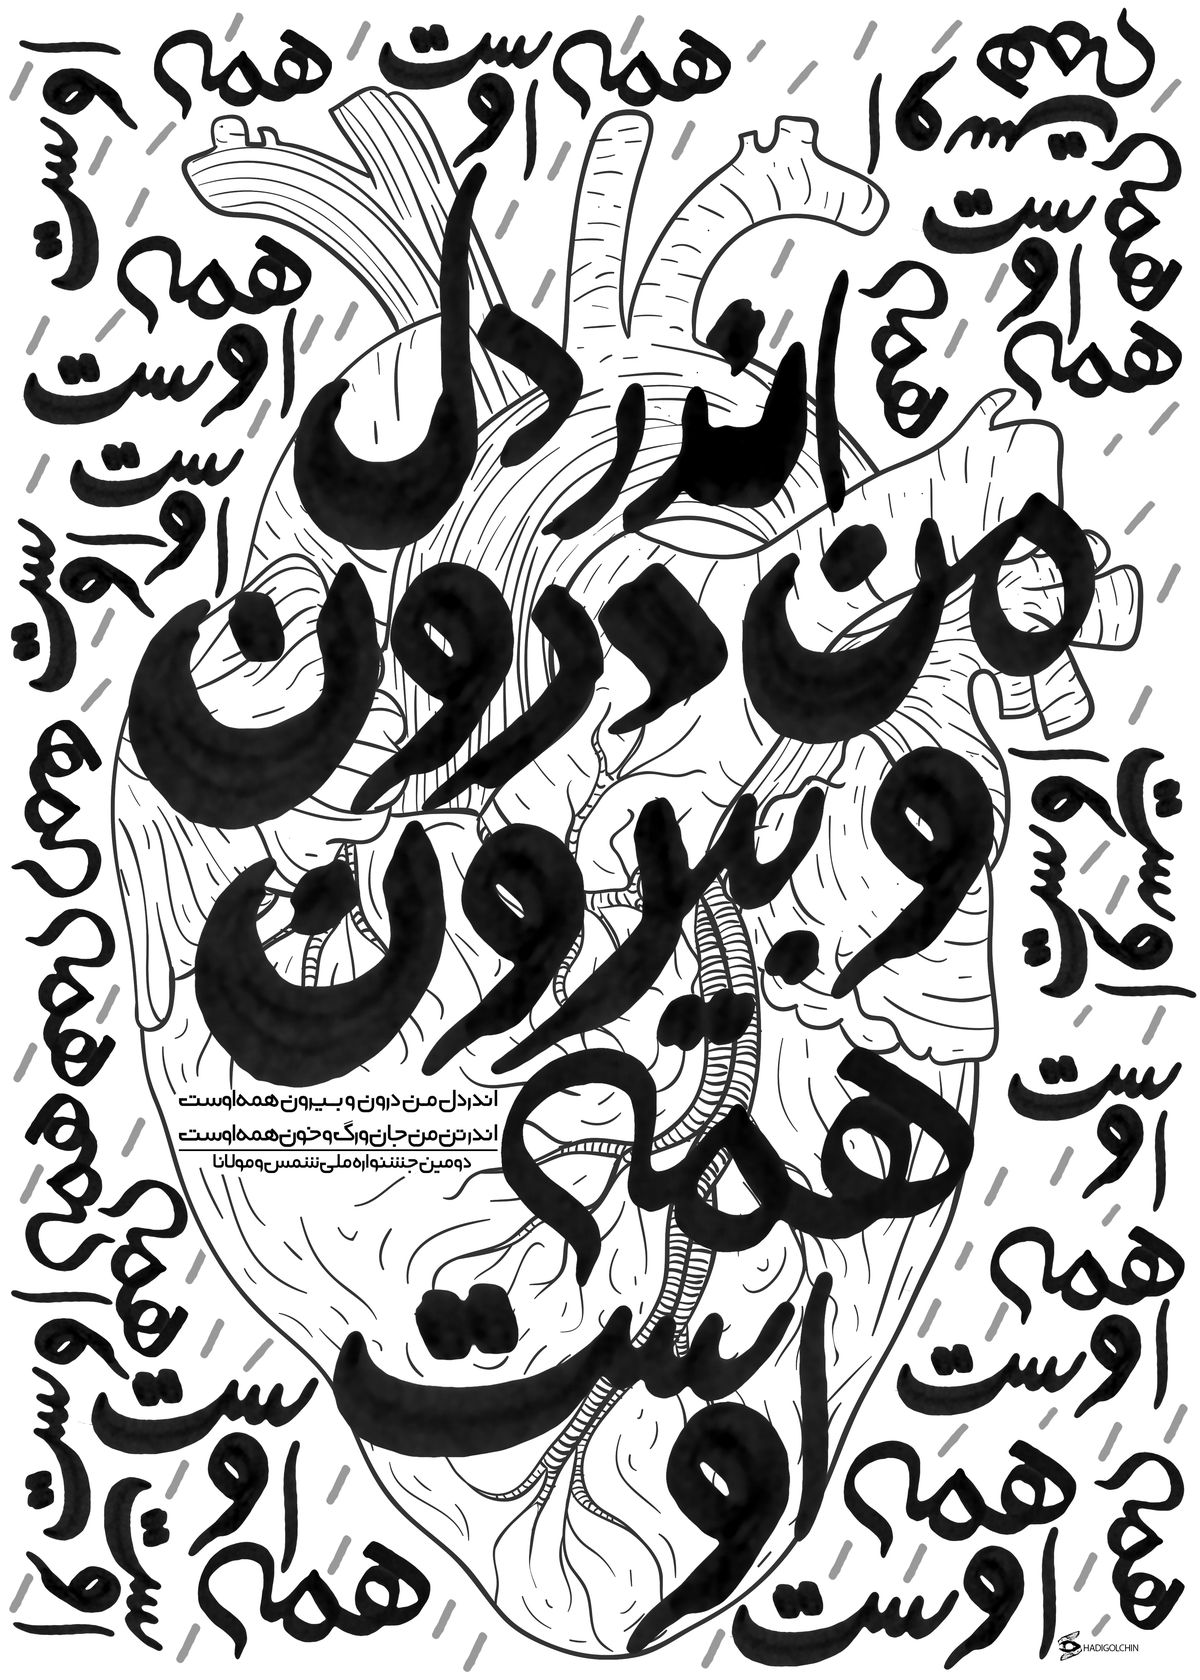 همه اوست
همه
اوست
همه
همه
اوست
همه
اوست
همه
همه
همه
اوست
اوست
اوست
اندر دل
من درون
و بیرون
همه
اوست
همه
همه
همه
همه
اوست
اوست
اوست
همه
اوست
اوست
همه
اوست
اوست
همه
اوست
همه
همه
اوست
اندر دل من درون و بیرون همه اوست
اندر تن من جان و رگ و خون همه اوست
دومین جشنواره ملی شمس و مولانا
HADIGOLCHIN